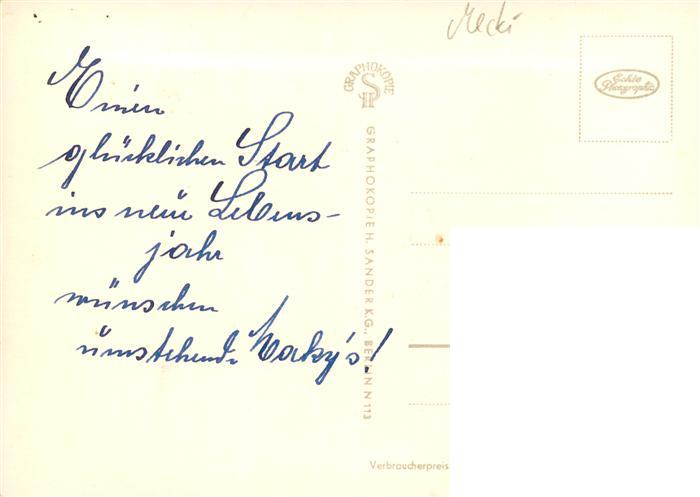 Mecki
Einen
glücklichen Start
ins neue Lebens-
jahr
wünschen
umstehende Maky's!
GRAPHOKOPIE
H S
GRAPHOKOPIE H. SANDER K.G., BERLIN N 113
Echte
Photographie
Verbraucherpreis